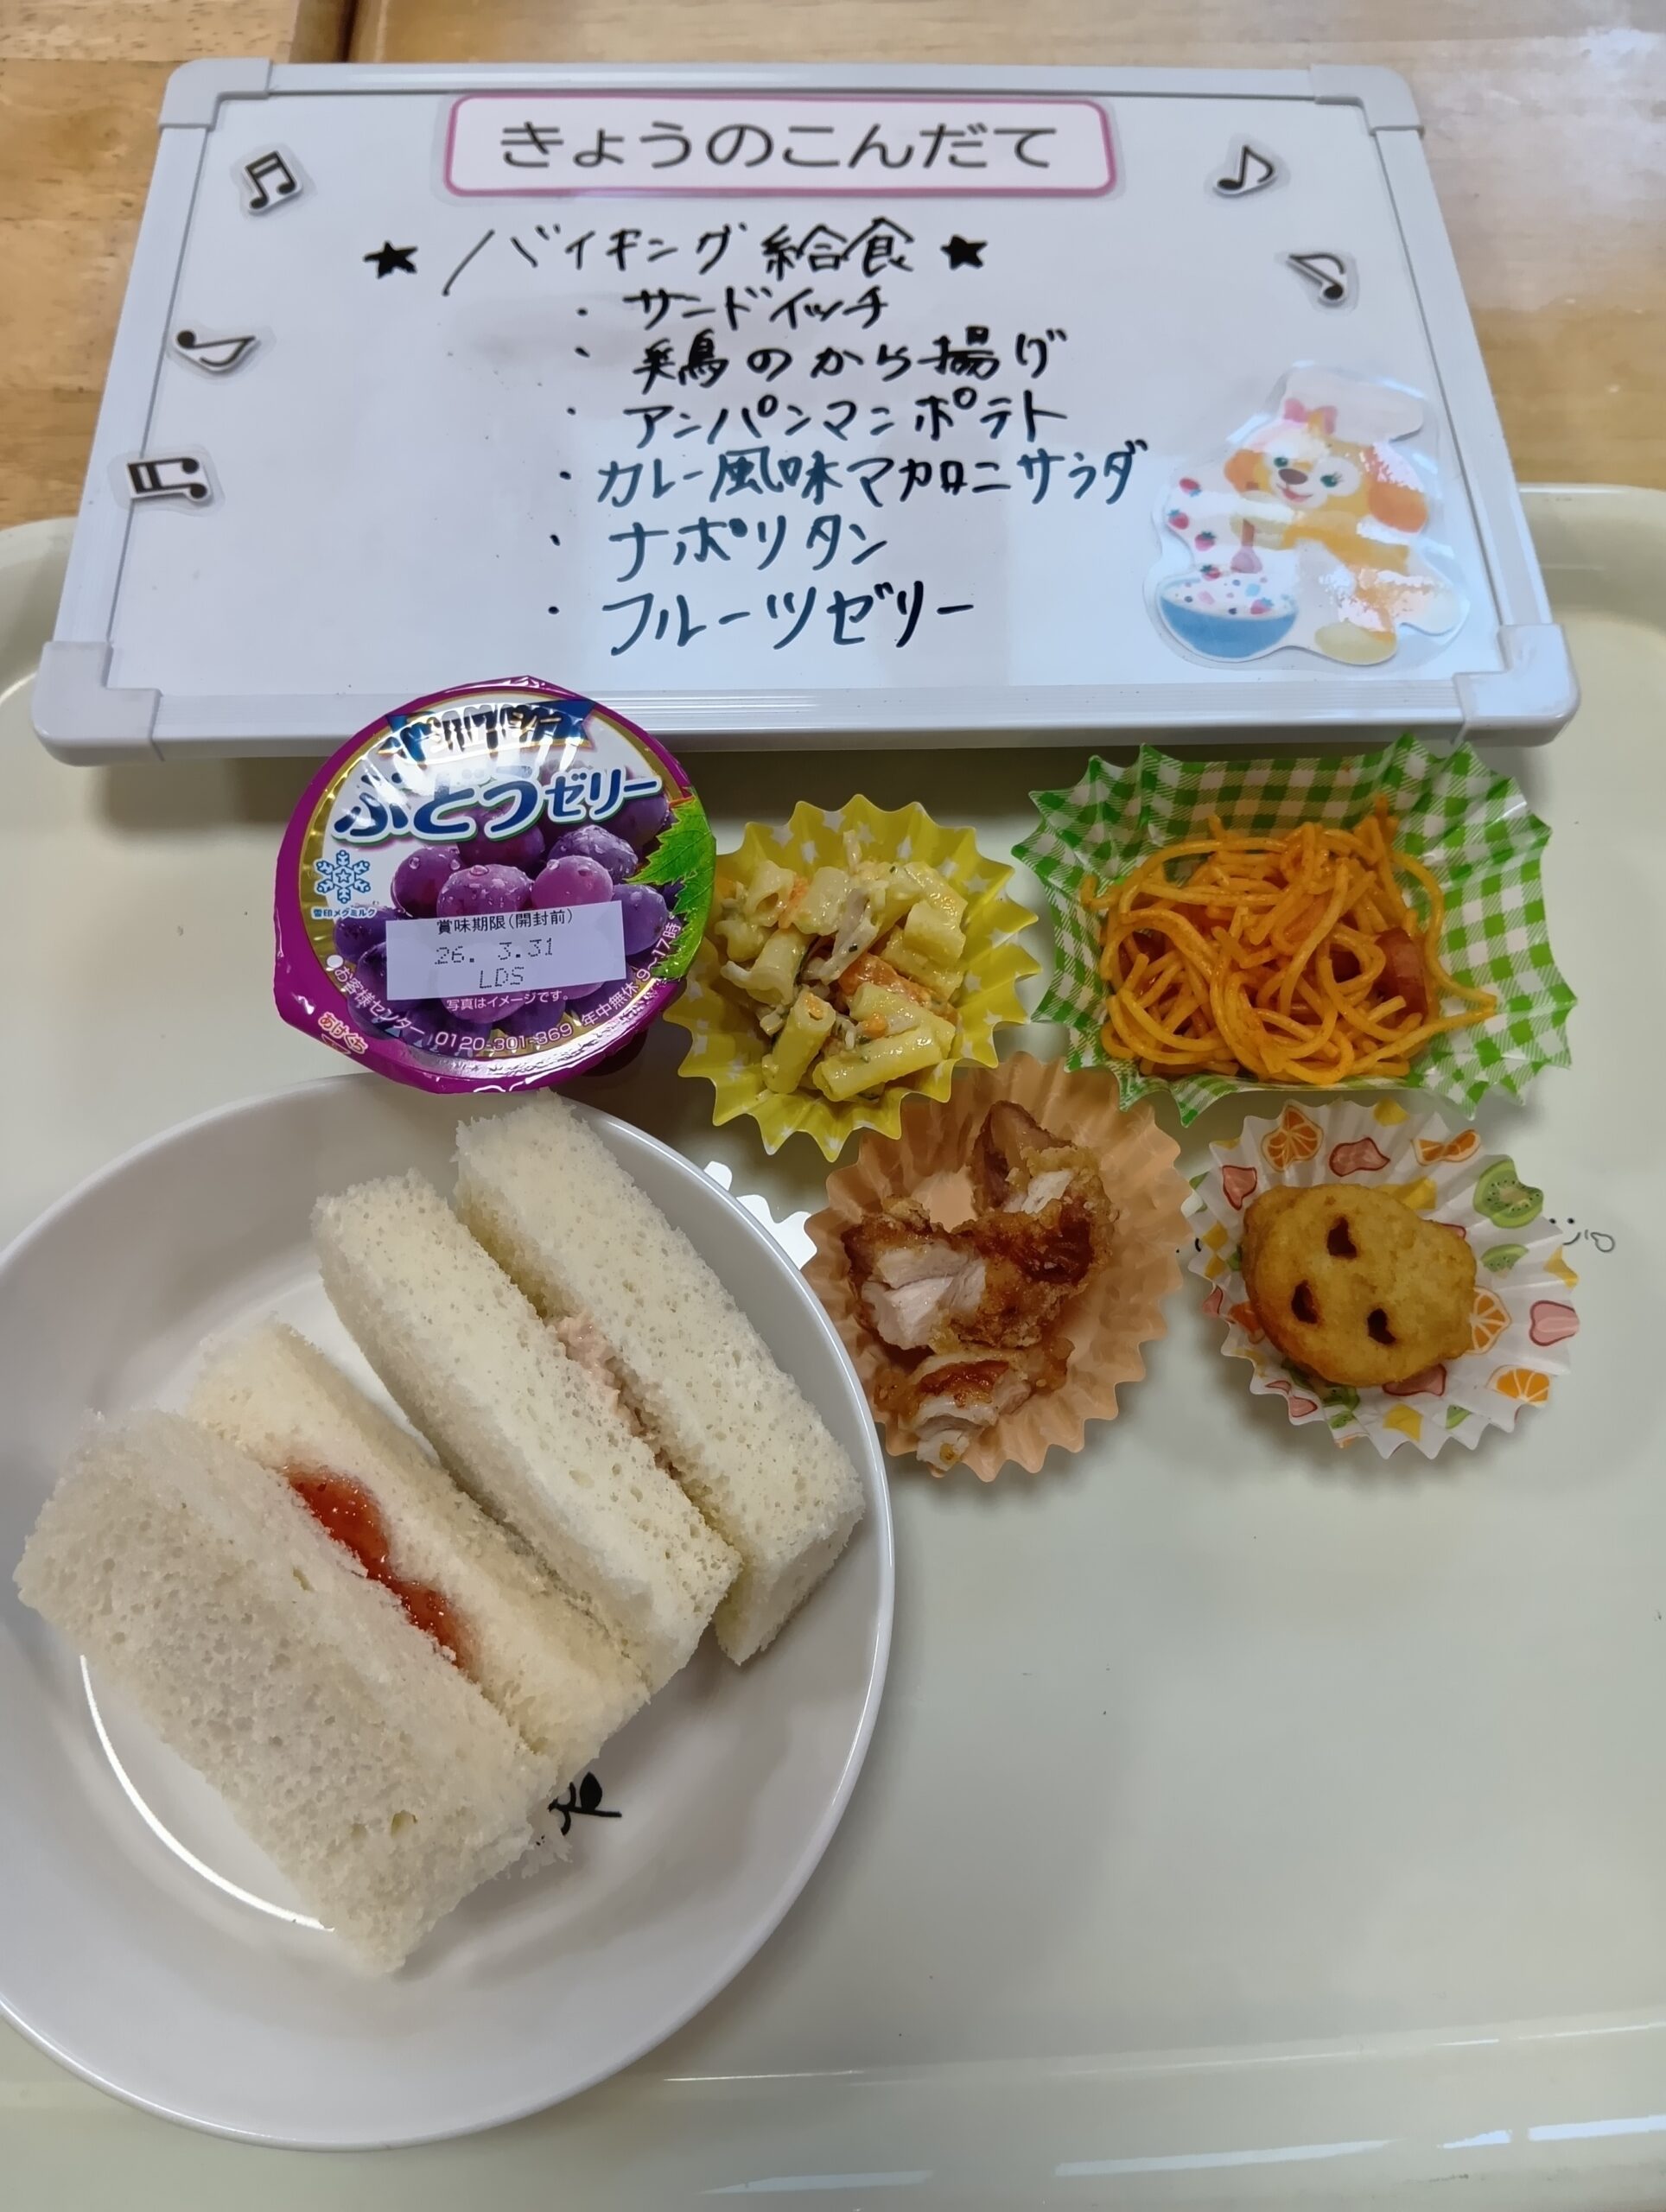 きょうのこんだて
★バイキング給食★
・サンドイッチ
・鶏のから揚げ
・アンパンマンポテト
・カレー風味マカロニサラダ
・ナポリタン
・フルーツゼリー
ぶどうゼリー
雪印メグミルク
賞味期限(開封前)
26. 3.31
LDS
写真はイメージです。
●お客様センター 0120-301-369 年中無休 9〜17時
あけくち